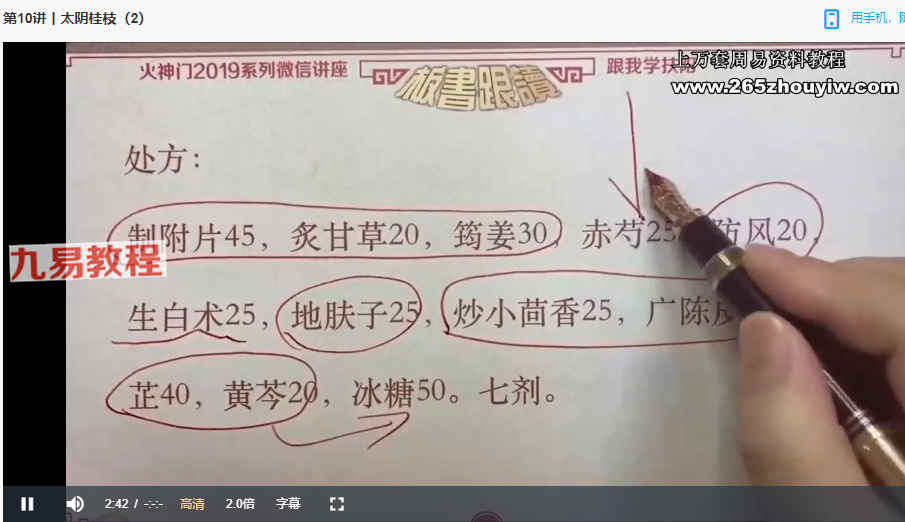 第10讲 | 太阴桂枝（2）
用手机，
火神门2019系列微信讲座
板書跟讀
跟我学扶阳
上万套周易资料教程
www.265zhouyiw.com
处方：
制附片45，炙甘草20，筠姜30，赤芍25 防风20，
九易教程
生白术25，地肤子25，炒小茴香25，广陈皮
芷40，黄芩20，冰糖50。七剂。
2:42 / -:-:- 高清 2.0倍 字幕